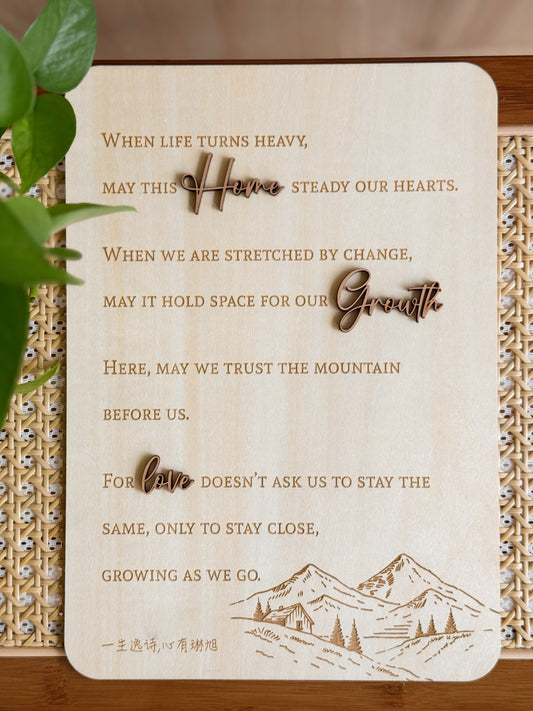 When life turns heavy,
may this Home steady our hearts.
When we are stretched by change,
may it hold space for our Growth
Here, may we trust the mountain
before us.
For love doesn't ask us to stay the
same, only to stay close,
growing as we go.
一生逸诗,心有琳旭